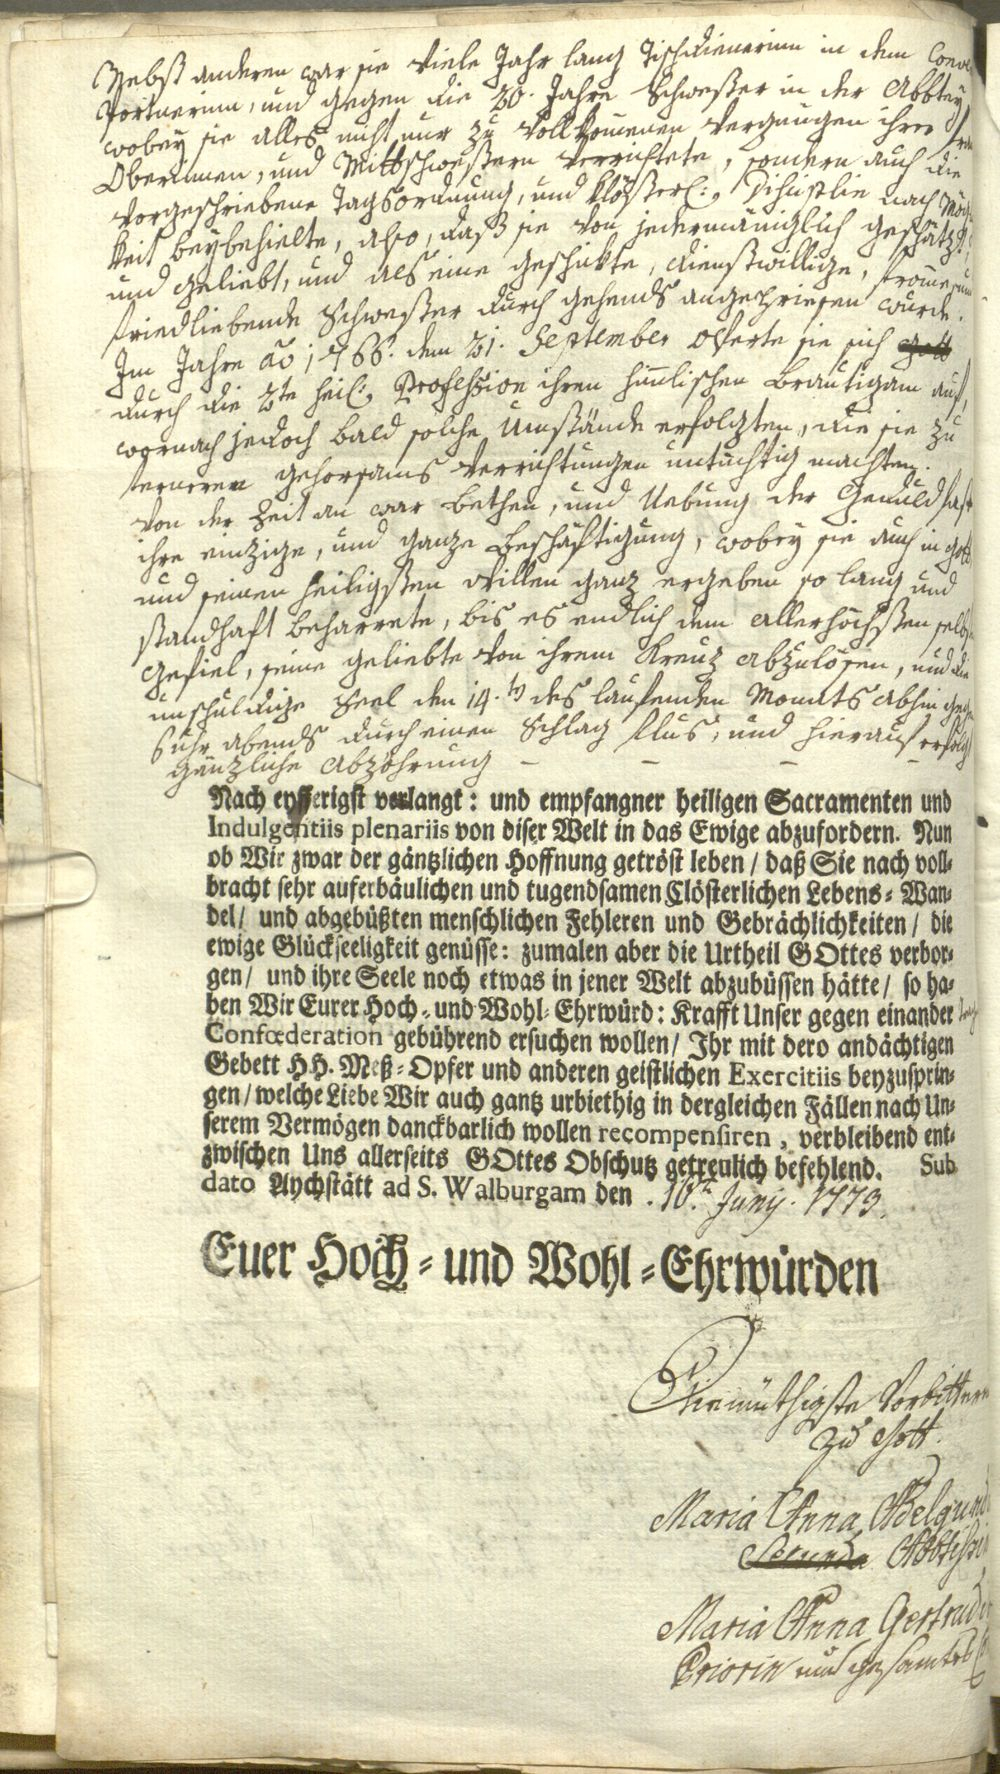 Nebst anderen war sie viele Jahr lang Tischdienerinn in dem Conve
Portnerinn, und gegen die 30. Jahre Schwester in der Abbtey
wobey sie alles nicht nur zu vollkommenen Vergnügen ihrer
Oberinnen, und Mittschwestern verrichtete, sondern auch die
vorgeschriebene Tagsordnung, und klösterl: Disciplin nach Mög
keit beybehielte, also, daß sie von jedermäniglich geschätzt,
und geliebt, und als eine geschikte, dienstwillige, from̃e, und
friedliebende Schwester durch gehends angepriesen wurde.
Im Jahre ao 1766. dem 21. September opferte sie sich Gott
durch die 2te heil: Profession ihren him̃lischen Bräutigam auf,
wornach jedoch bald solche Umstände erfolgten, die sie zu
ferneren gehorsams Verrichtungen untüchtig machten.
Von der Zeit an war Bethen, und Uebung der Geduld fast
ihre einzige, und ganze Beschäftigung, wobey sie auch in Gott
und seinen heiligsten Willen ganz ergeben so lang und
standhaft beharrete, bis es endlich dem Allerhöchsten selbst
gefiel, seine geliebte von ihrem Kreuz abzulösen, und die
unschuldige Seel den 14.ts des laufenden Monats Abhin gegen
uhr abends durch einen Schlag Flus, und hierauf erfolgt
gänzliche Abzöhrung – – – –
Nach eyfferigst verlangt: und empfangner heiligen Sacramenten und
Indulgentiis plenariis von diser Welt in das Ewige abzufordern. Nun
ob Wir zwar der gäntzlichen Hoffnung getröst leben / daß Sie nach voll-
bracht sehr auferbäulichen und tugendsamen Clösterlichen Lebens-Wan-
del / und abgebüßten menschlichen Fehleren und Gebrächlichkeiten / die
ewige Glückseeligkeit genüsse: zumalen aber die Urtheil GOttes verbor-
gen / und ihre Seele noch etwas in jener Welt abzubüssen hätte / so ha-
ben Wir Eurer Hoch- und Wohl-Ehrwürd: Krafft Unser gegen einander
Confœderation gebührend ersuchen wollen / Ihr mit dero andächtigen
Gebett HH. Meß-Opfer und anderen geistlichen Exercitiis beyzusprin-
gen / welche Liebe Wir auch gantz urbiethig in dergleichen Fällen nach Un-
serem Vermögen danckbarlich wollen recompensiren, verbleibend ent-
zwischen Uns allerseits GOttes Obschutz getreulich befehlend. Sub
dato Aychstätt ad S. Walburgam den . 16.ten Junij. 1773.
Euer Hoch- und Wohl-Ehrwürden
Diemüthigste Vorbitteren
zu Gott.
Maria Anna Adelgund
Secunda Abbtissin
Maria Anna Gertrud
Priorin und gesamtes